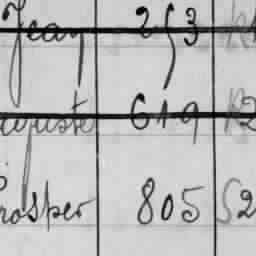 Jean 253
Auguste 619 82
Prosper 805 52